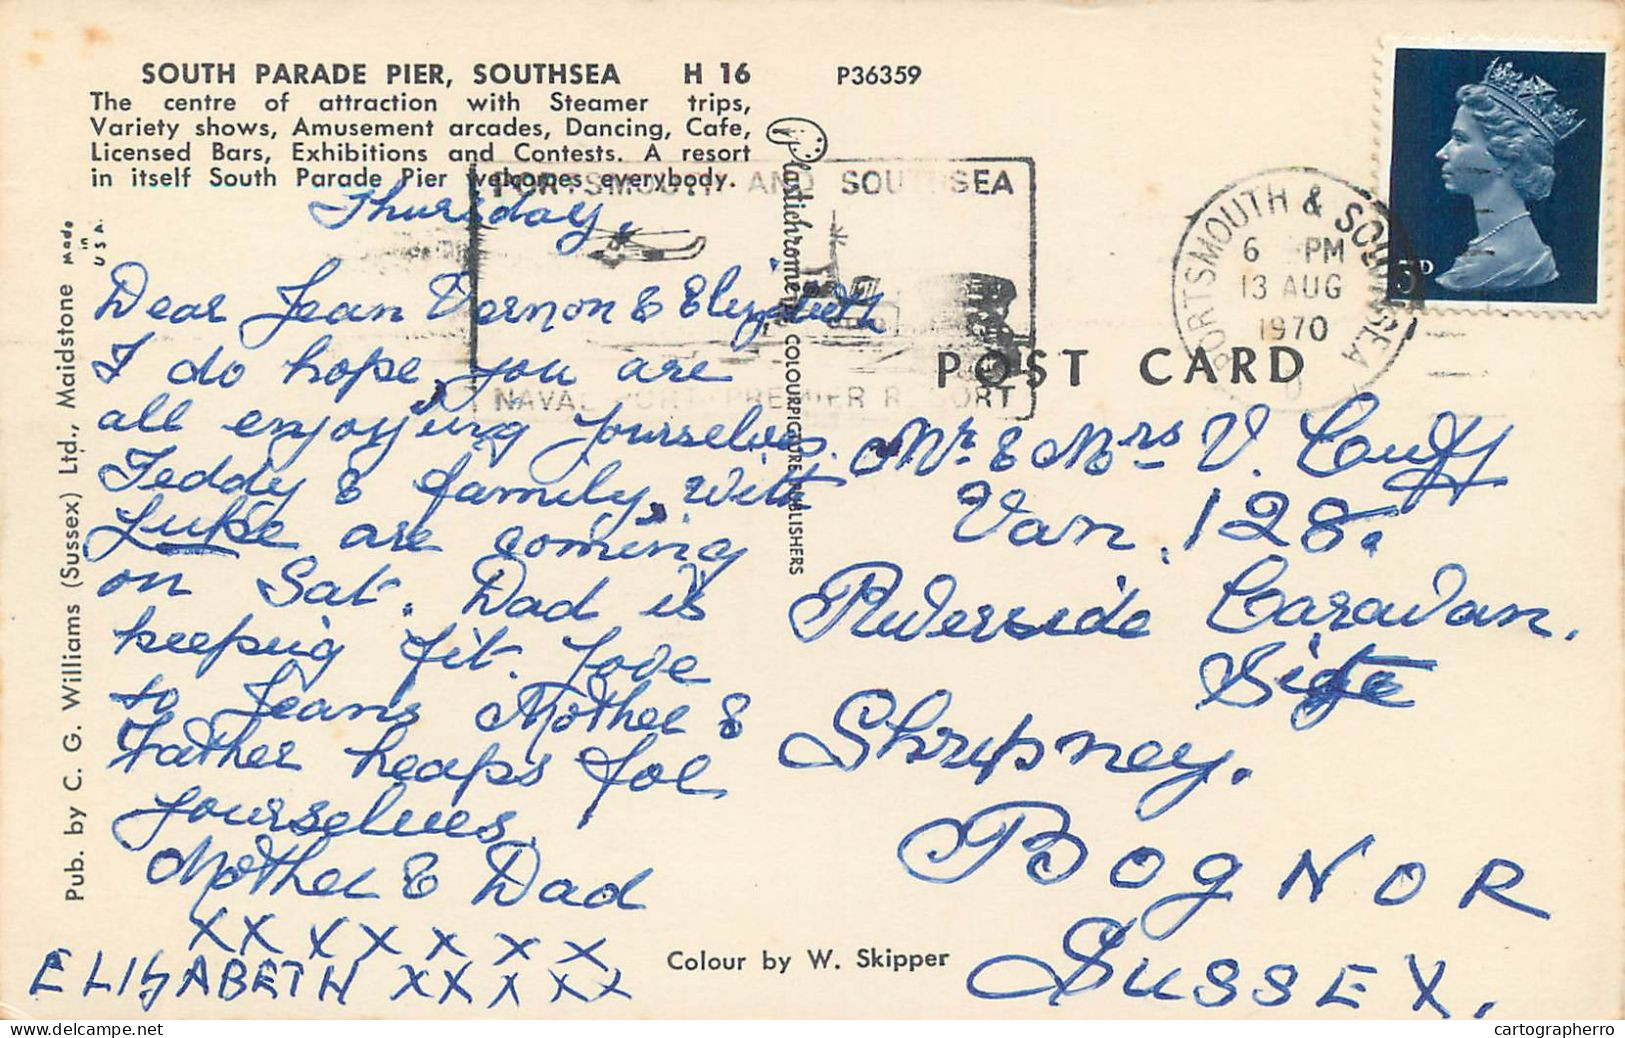 SOUTH PARADE PIER, SOUTHSEA H 16 P36359
The centre of attraction with Steamer trips,
Variety shows, Amusement arcades, Dancing, Cafe,
Licensed Bars, Exhibitions and Contests. A resort
in itself South Parade Pier welcomes everybody.
Pub. by C. G. Williams (Sussex) Ltd., Maidstone Made in U.S.A.
Plastichrome COLOURPICTURE PUBLISHERS
PORTSMOUTH AND SOUTHSEA
NAVAL PORT PREMIER RESORT
PORTSMOUTH & SOUTHSEA
6 PM
13 AUG
1970
D
5D
POST CARD
Thursday,
Dear Jean Vernon & Elizabeth
I do hope you are
all enjoying yourselves.
Teddy & family, with
Luke are coming
on Sat. Dad is
keeping fit. Love
to Jeans Mother &
Father heaps for
yourselves.
Mother & Dad
XX X X X X X
ELISABETH XX X XX
Mr & Mrs V. Cuff
Van. 128.
Riverside Caravan.
Site
Shripney.
BOGNOR
SUSSEX.
Colour by W. Skipper
cartographerro